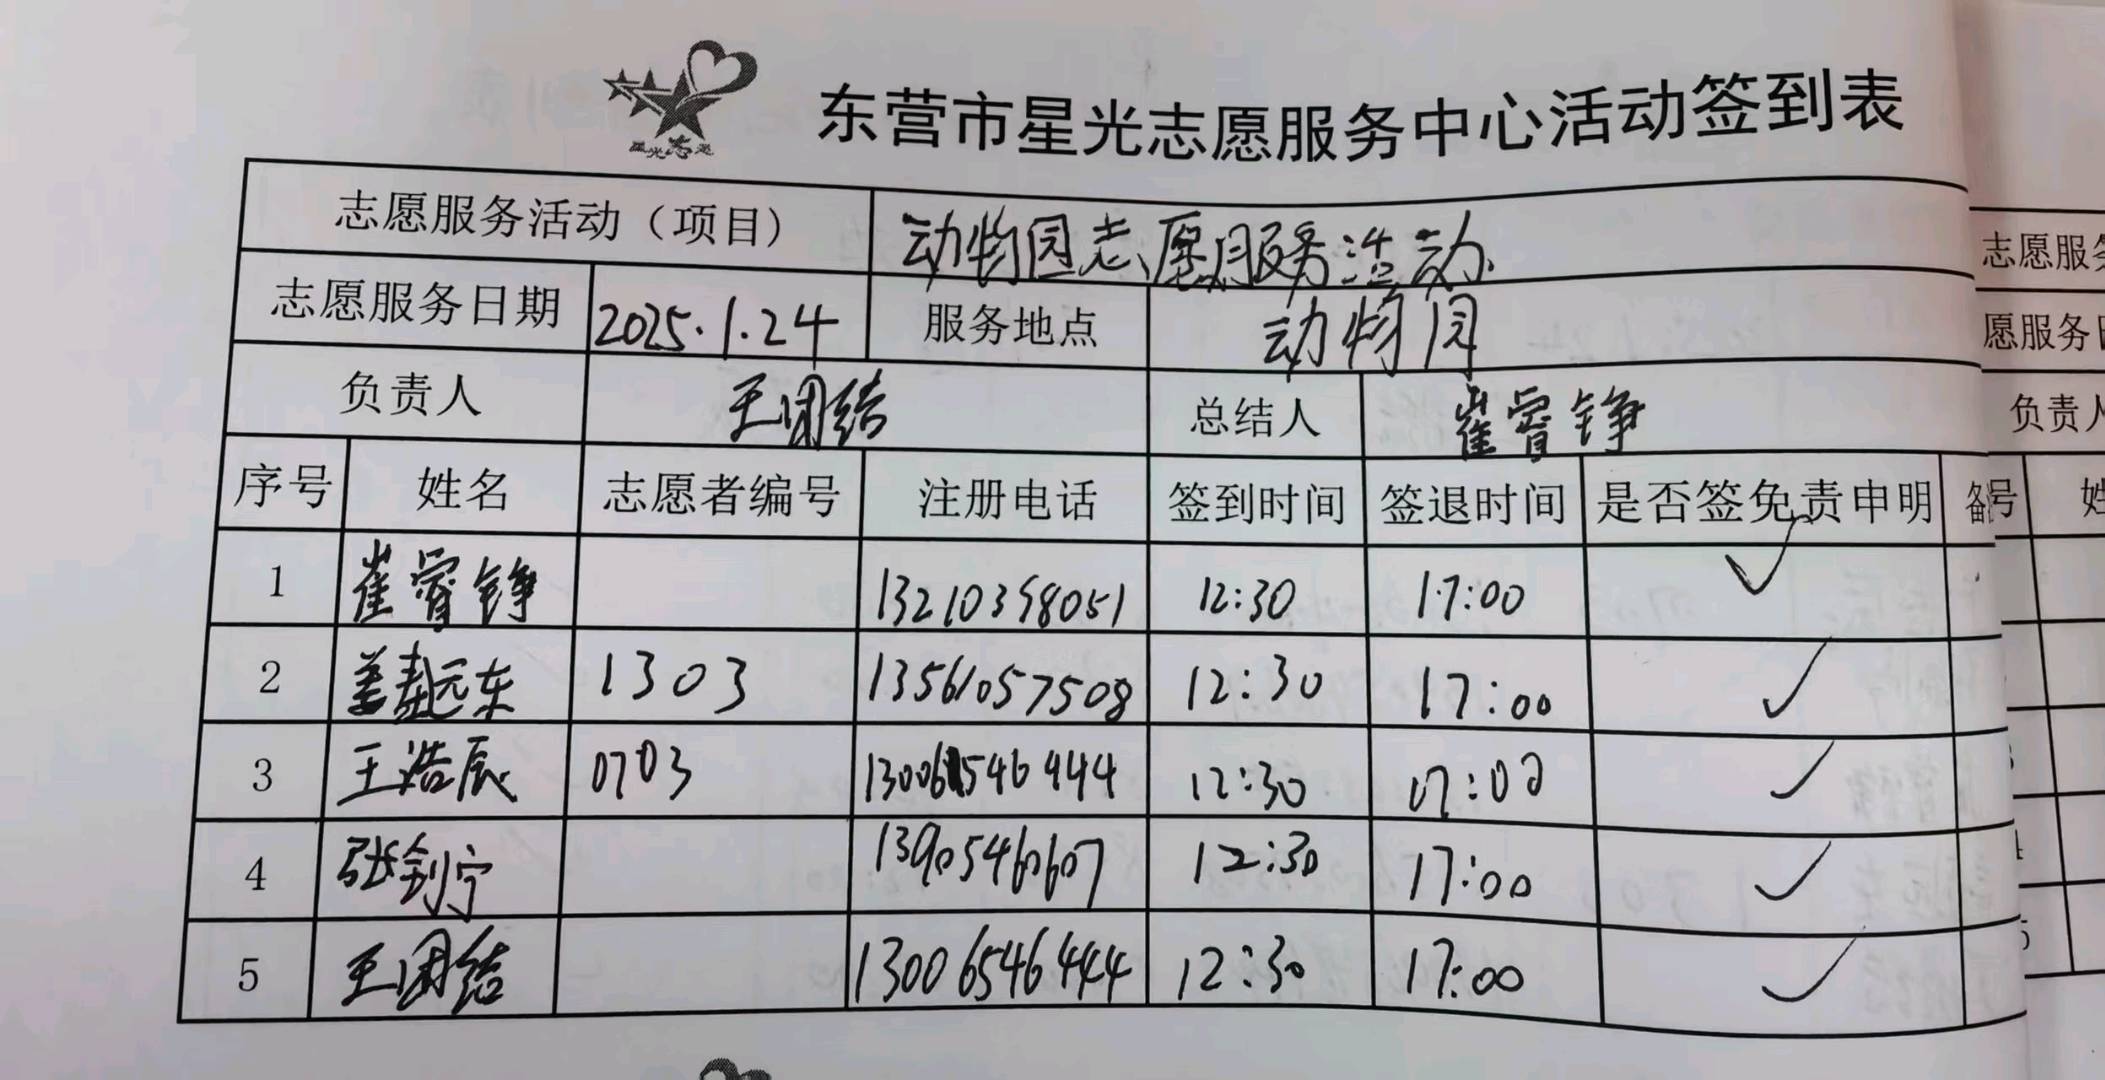 星光志愿
东营市星光志愿服务中心活动签到表
志愿服务活动（项目） 动物园志愿服务活动
志愿服务日期 2025.1.24 服务地点 动物园
负责人 王团结 总结人 崔睿铮
序号 姓名 志愿者编号 注册电话 签到时间 签退时间 是否签免责申明 备
1 崔睿铮 13210398051 12:30 17:00 ✓
2 姜远东 1303 13561057508 12:30 17:00 ✓
3 王浩辰 0703 13006546444 12:30 17:00 ✓
4 张钊宁 13905460607 12:30 17:00 ✓
5 王团结 13006546444 12:30 17:00 ✓
志愿服务
愿服务日
负责人
号 姓